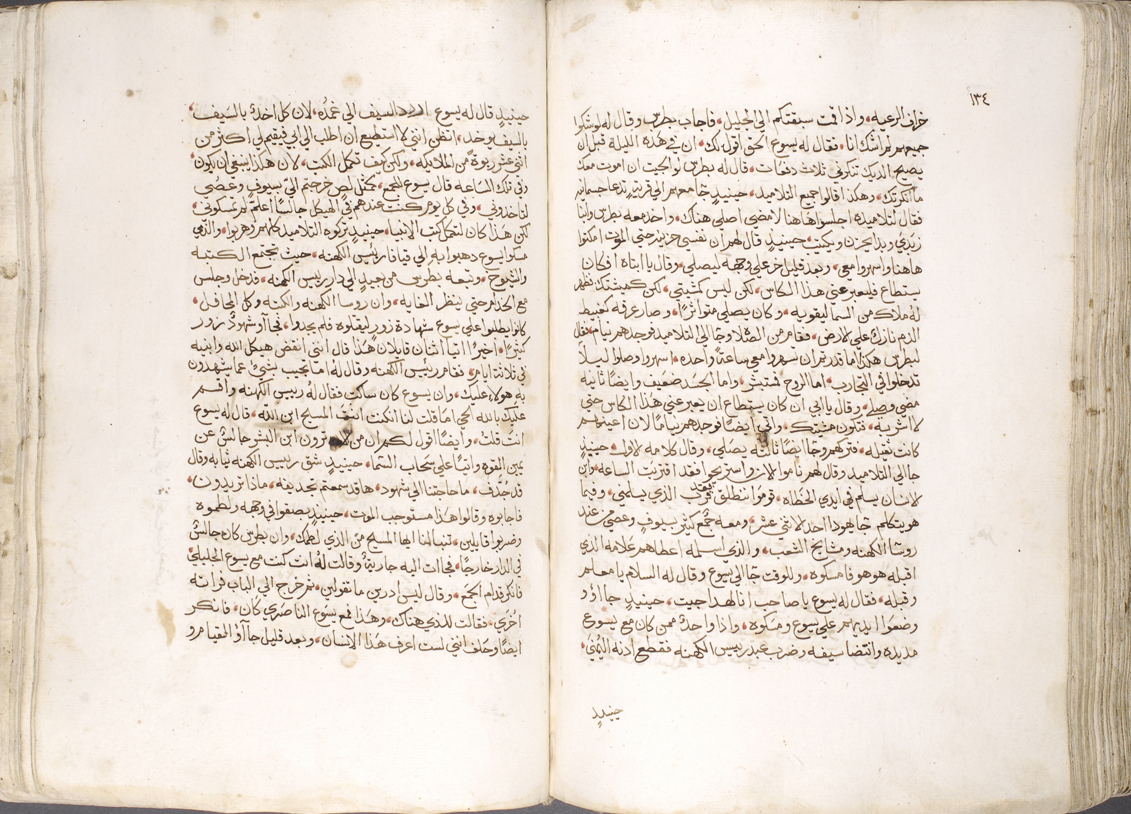 ١٣٤
خراف الرعيه، واذا قمت سبقتكم الي الجليل، فاجاب بطرس وقال له لو شكوا
جميعهم لم اشك انا، فقال له يسوع الحق اقول لك، ان في هذه الليلة قبل ان
يصيح الديك تنكرني ثلات دفعات، قال له بطرس لو الجيت ان اموت معك
ما انكرتك، وهكذا قالوا جميع التلاميد، حينيدٍ جا معهم الي قرية تدعا جسمانيه
فقال لتلاميده اجلسوا هاهنا لامضي اصلي هناك، واخد معه بطرس وابنا
زبدي وبدا يحزن ويكتيب، حينيدٍ قال لهم ان نفسي حزينه حتي الموت امكثوا
هاهنا واسهروا معي، وبعد قليل خر علي وجهه ليصلي، وقال يا ابتاه ان كان
يستطاع فليعبر عني هذا الكاس، لكن ليس كمشيتي، لكن كمشيتك فظهر
له ملاك من السما ليقويه، وكان يصلي متواترًا، وصار عرقه كعبيط
الدم نازلًا علي الارض، فقام من الصلاه وجا الي التلاميد فوجدهم نيام، فقال
لبطرس هكذا ما قدرتم ان تسهروا معي ساعةً واحده، اسهروا وصلوا ليلا
تدخلوا في التجارب، اما الروح فمتيسٌ، واما الجسد ضعيف وايضًا ثانيه
مضي وصلي، وقال يا ابي ان كان يستطاع ان يعبر عني هذا الكاس حتي
لا اشربه، فتكون مشيتك، واتي ايضًا فوجدهم نيامًا لان اعينهم
كانت ثقيله، فتركهم وجا ايضًا ثالثه يصلي، وقال كلامه الاول، حينيدٍ
جا الي التلاميد وقال لهم ناموا الان واستريحوا فقد اقتربت الساعه، وابن
الانسان يسلم في ايدي الخطاه، قوموا ننطلق فقد قرب الذي يسلمني، وفيما
هو يتكلم جا يهودا احد الاتني عشر، ومعه جمع كثير بسيوفٍ وعصي من عند
روسا الكهنه ومشايخ الشعب، والذي اسلمه اعطاهم علامه الذي
اقبله هو هو فامسكوه، وللوقت جا الي يسوع وقال له السلام يا معلم
وقبله، فقال له يسوع يا صاحب انا لهدا جيت، حينيدٍ جااؤو
وضعوا ايديهم علي يسوع ومسكوه، واذا واحدٌ ممن كان مع يسوع
مد يده وانتضا سيفه وضرب عبد رييس الكهنه فقطع ادنه اليمني،
حينيدٍ
حينيدٍ قال له يسوع اردد السيف الي غمده، لان كل اخدٍ بالسيف،
بالسيف يوخد، اتظن انني لا استطيع ان اطلب الي ابي فيقيم لي اكثر من
اتني عشر ربوة من الملايكه، ولكن كيف تكمل الكتب، لان هكذا ينبغي ان يكون،
وفي تلك الساعه قال يسوع للجمع، كمثل لص خرجتم اليّ بسيوفٍ وعصي
لتاخدوني، وفي كل يوم كنت عندهم في الهيكل جالسًا اعلم لم تمسكوني،
لكن هذا كان لتكمل كتب الانبيا، حينيدٍ تركوه التلاميد كلهم وهربوا، والذي
مسكوا يسوع دهبوا به الي قيافا رئيس الكهنه، حيث تجتمع الكتبه
والشيوخ، وتبعه بطرس من بعيد الي دار رييس الكهنه، فدخل وجلس
مع الخدام حتي ينظر الغايه، وان روسا الكهنه والكتبه وكل المحافل،
كانوا يطلبوا علي يسوع شهادة زور ليقتلوه فلم يجدوا، فجآؤ شهودُ زور
كثيرًا، اخيرًا اتيا اثنان قايلان هذا قال انني انقض هيكل الله وابنيه
في ثلاثة ايام، فقام رييس الكهنه وقال له اما تجيب بشيءٍ عما يشهدون
به هولاء عليك، وان يسوع كان ساكت فقال له رييس الكهنه واقسم
عليك بالله الحي اما قلت لنا ان كنت انت المسيح ابن الله، قال له يسوع
انت قلت، وايضًا اقول لكم ان من الان ترون ابن البشر جالس عن
يمين القوه واتيًا علي سحاب السما، حينيدٍ شق رييس الكهنه ثيابه وقال
قد جدّف، ما حاجتنا الي شهود، هاقد سمعتم تجديفه، ماذا تريدون،
فاجابوه وقالوا هذا مستوجب الموت، حينيدٍ بصقوا في وجهه ولطموه
وضربوه قايلين، تنبا لنا ايها المسيح من الذي لطمك، وان بطرس كان جالسٌ
في الدار خارجًا، فجاات اليه جاريةٌ وقالت له انت كنت مع يسوع الجليلي،
فانكر قدام الجمع، وقال ليس ادري ما تقولين، ثم خرج الي الباب فراته
اخري، فقالت للذي هناك، وهذا مع يسوع الناصري كان، فانكر
ايضًا وحلف انني لست اعرف هذا الانسان، وبعد قليل جاآؤ القيام و